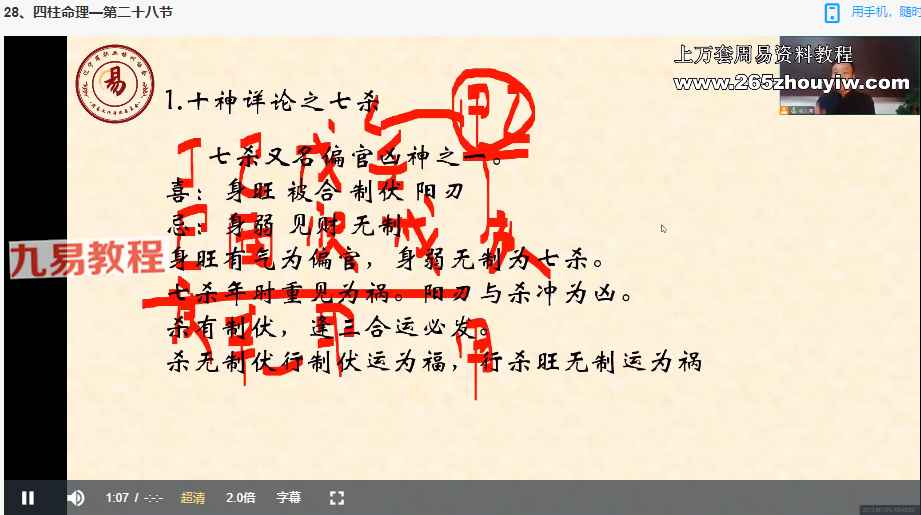 28、四柱命理—第二十八节
用手机，随时
上万套周易资料教程
www.265zhouyiw.com
易
1.十神详论之七杀
七杀又名偏官凶神之一。
喜：身旺 被合 制伏 阳刃
忌：身弱 见财 无制
九易教程
身旺有气为偏官，身弱无制为七杀。
七杀年时重见为祸。阳刃与杀冲为凶。
杀有制伏，逢三合运必发。
杀无制伏行制伏运为福，行杀旺无制运为祸
甲乙
丁 己 戊
戊
甲
1:07 / -:-:- 超清 2.0倍 字幕